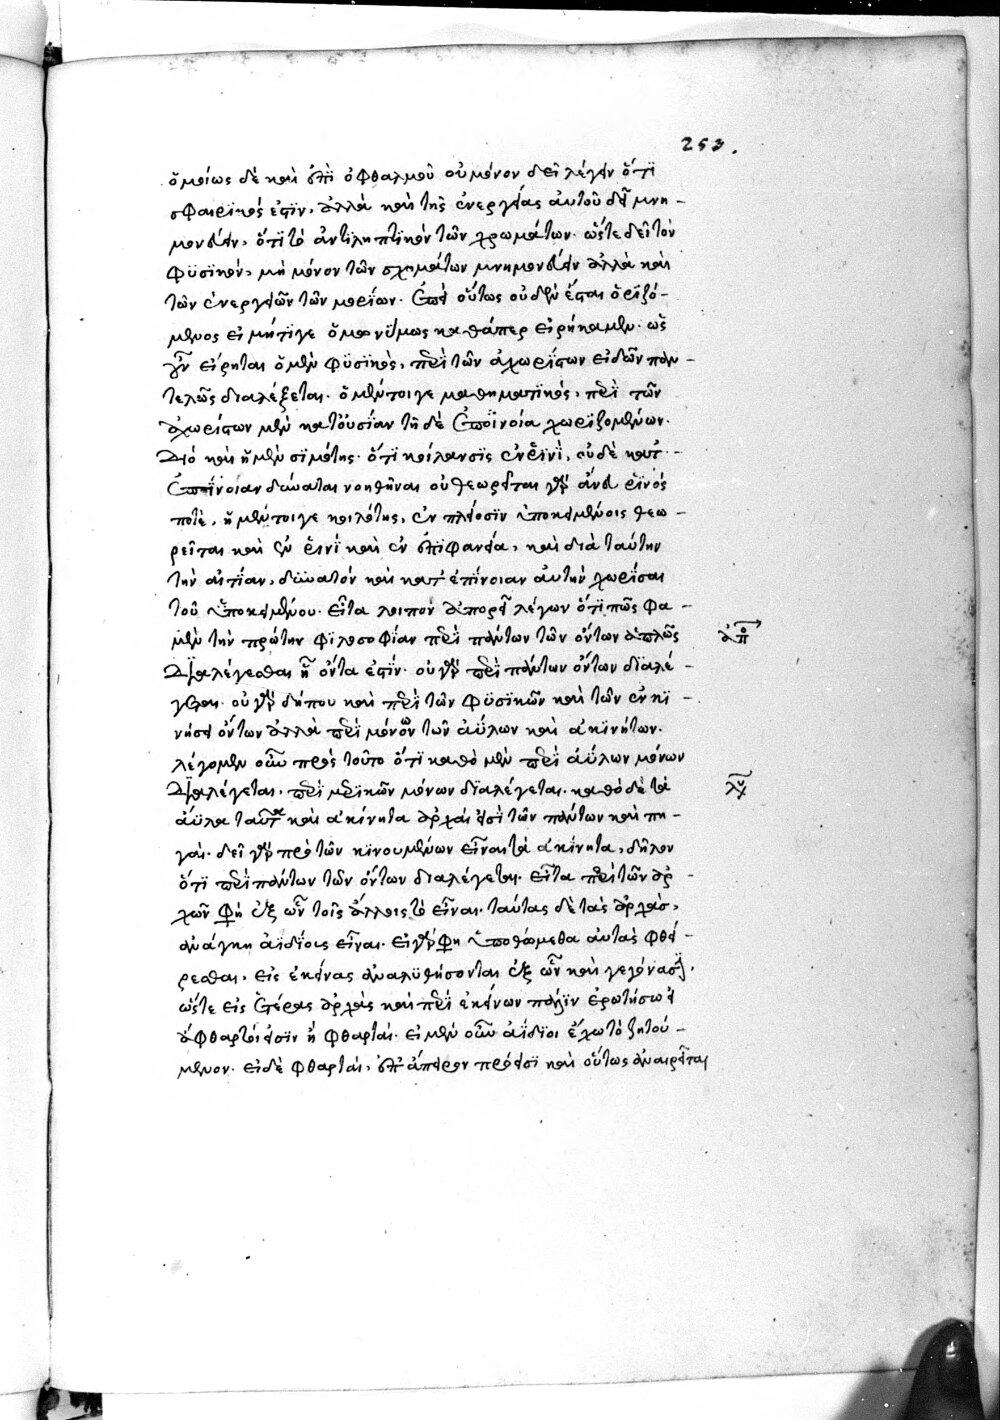 253.
ὁμοίως δὲ καὶ ἐπὶ ὀφθαλμοῦ οὐ μόνον δεῖ λέγειν ὅτι
σφαιρικός ἐστιν, ἀλλὰ καὶ τῆς ἐνεργείας αὐτοῦ δεῖ μνη-
μονεύειν, ὅτι τὸ ἀντιληπτικὸν τῶν χρωμάτων. ὥστε δεῖ τὸν
φυσικὸν, μὴ μόνον τῶν σχημάτων μνημονεύειν ἀλλὰ καὶ
τῶν ἐνεργειῶν τῶν μορίων. ἐπεὶ οὕτως οὐδὲν ἔσται ὁριζό-
μενος εἰ μήτι γε ὁμωνύμως καθάπερ εἰρήκαμεν. ὡς
γοῦν εἴρηται ὁ μὲν φυσικὸς, περὶ τῶν ἀχωρίστων εἰδῶν παν-
τελῶς διαλέξεται. ὁ μέντοιγε μαθηματικός, περὶ τῶν
ἀχωρίστων μὲν κατ' οὐσίαν τῇ δὲ ἐπινοία χωριζομένων.
Διό καὶ ἡ μὲν σιμότης. ὅτι κοίλανσις ἐν ῥινὶ, οὐδὲ κατ'
ἐπίνοιαν δύναται νοηθῆναι οὐ θεωρεῖται γὰρ ἄνευ ῥινός
ποτὲ, ἡ μέντοιγε κοιλότης, ἐν πλείοσιν ὑποκειμένοις θεω-
ρεῖται καὶ ἐν ῥινὶ καὶ ἐν ἐπιφανεία, καὶ διὰ ταύτην
τὴν αἰτίαν, δυνατόν καὶ κατ' ἐπίνοιαν αὐτὴν χωρίσαι
τοῦ ὑποκειμένου. Εἶτα λοιπὸν ἀπορεῖ λέγων ὅτι πῶς φα-
μὲν τὴν πρώτην φιλοσοφίαν περὶ πάντων τῶν ὄντων ἁπλῶς
ἀπορ
Διαλέγεσθαι ᾗ ὄντα ἐστίν. οὐ γὰρ περὶ πάντων ὄντων διαλέ-
γεται. οὐ γὰρ δήπου καὶ περὶ τῶν φυσικῶν καὶ τῶν ἐν κι-
νήσει ὄντων ἀλλὰ περὶ μόνων τῶν ἀΰλων καὶ ἀκινήτων.
λέγομεν οὖν πρὸς τοῦτο ὅτι καθὸ μὲν περὶ ἀΰλων μόνων
Διαλέγεται, περὶ μερικῶν μόνων διαλέγεται. καθὸ δὲ τὰ
λύ
ἄϋλα ταῦτα καὶ ἀκίνητα ἀρχαὶ εἰσὶ τῶν πάντων καὶ πη-
γαὶ. δεῖ γὰρ πρὸ τῶν κινουμένων εἶναι τὰ ἀκίνητα, δῆλον
ὅτι περὶ πάντων τῶν ὄντων διαλέγεται. Εἶτα περὶ τῶν ἀρ-
χῶν φη ἐξ ὧν τοῖς ἄλλοις τὸ εἶναι. ταύτας δὲ τὰς ἀρχὰς,
ἀνάγκη ἀϊδίοις εἶναι. Εἰ γάρ φη ὑποθώμεθα αὐτὰς φθεί-
ρεσθαι, εἰς ἐκείνας ἀναλυθήσονται ἐξ ὧν καὶ γεγόνασι,
ὥστε εἰς ἑτέρας ἀρχὰς καὶ περὶ ἐκείνων πάλιν ἐρωτήσω εἰ
ἄφθαρτοι εἰσὶν ἢ φθαρταί. εἰ μὲν οὖν ἀΐδιοι ἔχω τὸ ζητού-
μενον. εἰ δὲ φθαρταί, ἐπ' ἄπειρον πρόεισι καὶ οὕτως ἀναιρεῖται